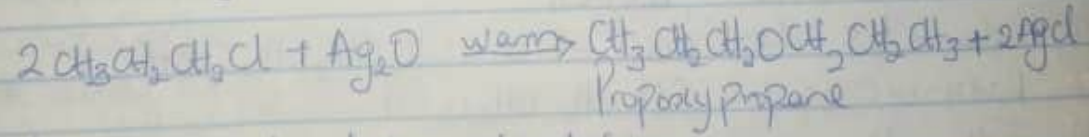 2CH₃CH₂CH₂Cl + Ag₂O warm→ CH₃CH₂CH₂OCH₂CH₂CH₃ + 2AgCl
Propoxypropane